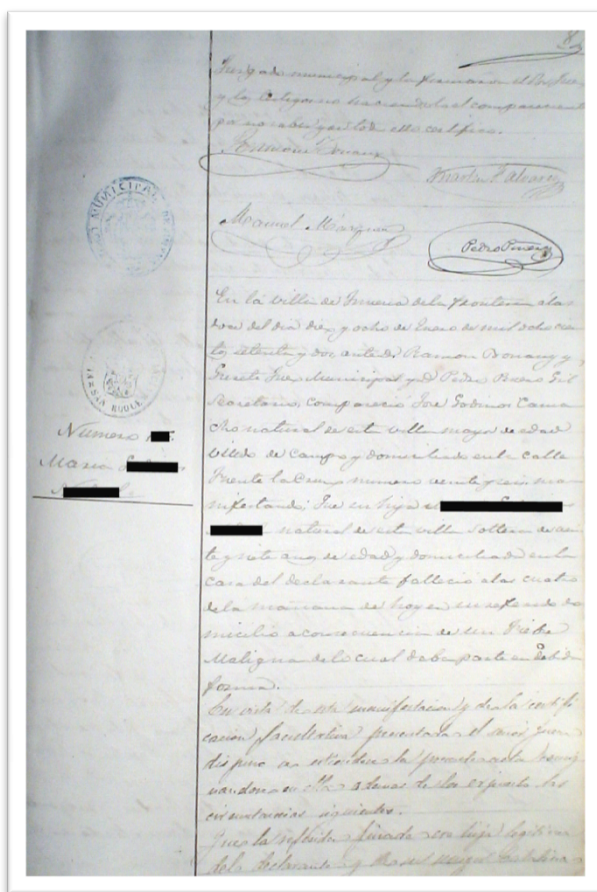 Juzgado municipal y la firmaron el Sr Juez
y los testigos no haciendolo el compareciente
por no saber y de todo ello certifico.
Ramon Bonany
Martin Talavera
Manuel Marquez
Pedro Perez
MUNICIPAL
SAN ROQUE
En la villa de Jimena de la frontera a las
doce del dia diez y ocho de Enero de mil ochocien
tos setenta y dos, ante Dr Ramon Bonany y
Juez Municipal y Dr Pedro
Secretario, comparecio José Godinos Cama
cho natural de esta villa mayor de edad
viudo de campo y domiciliado en la calle
Fuente la Campo numero veinte y seis ma
nifestando; Que su hija
Numero
Maria
natural de esta villa soltera de vein
te y siete años de edad y domiciliada en la
casa del declarante fallecio a las cuatro
de la mañana de hoy en su referido do
micilio a consecuencia de un Fiebre
Maligna de lo cual daba parte en debida
forma.
En vista de esta manifestacion y de la certifi
cacion facultativa presentada el señor Juez
dispuso se estendiera la presente acta consig
nandose en ella ademas de lo expuesto las
circunstancias siguientes.
Que la referida finada era hija legitima
del declarante y de su muger Catalina